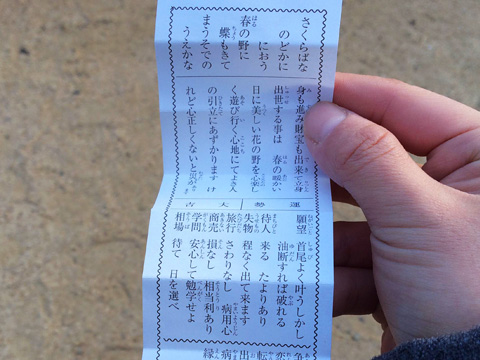 さくらばな
のどかに
におう
春の野に
蝶もきて
まうそでの
うえかな
身も進み財宝も出来て立身
出世する事は 春の暖かい
日に美しい花の野を心楽し
く遊び行く心地にてよき人
の引立にあずかります け
れど心正しくないと災がき
運勢 大吉
願望 首尾よく叶うしかし
油断すれば破れる
待人 来る たよりあり
失物 程なく出て来ます
旅行 さわりなし 病用心
商売 損なし 相当利あり
学問 安心して勉学せよ
相場 待て 日を選べ
争
転
出
病
縁